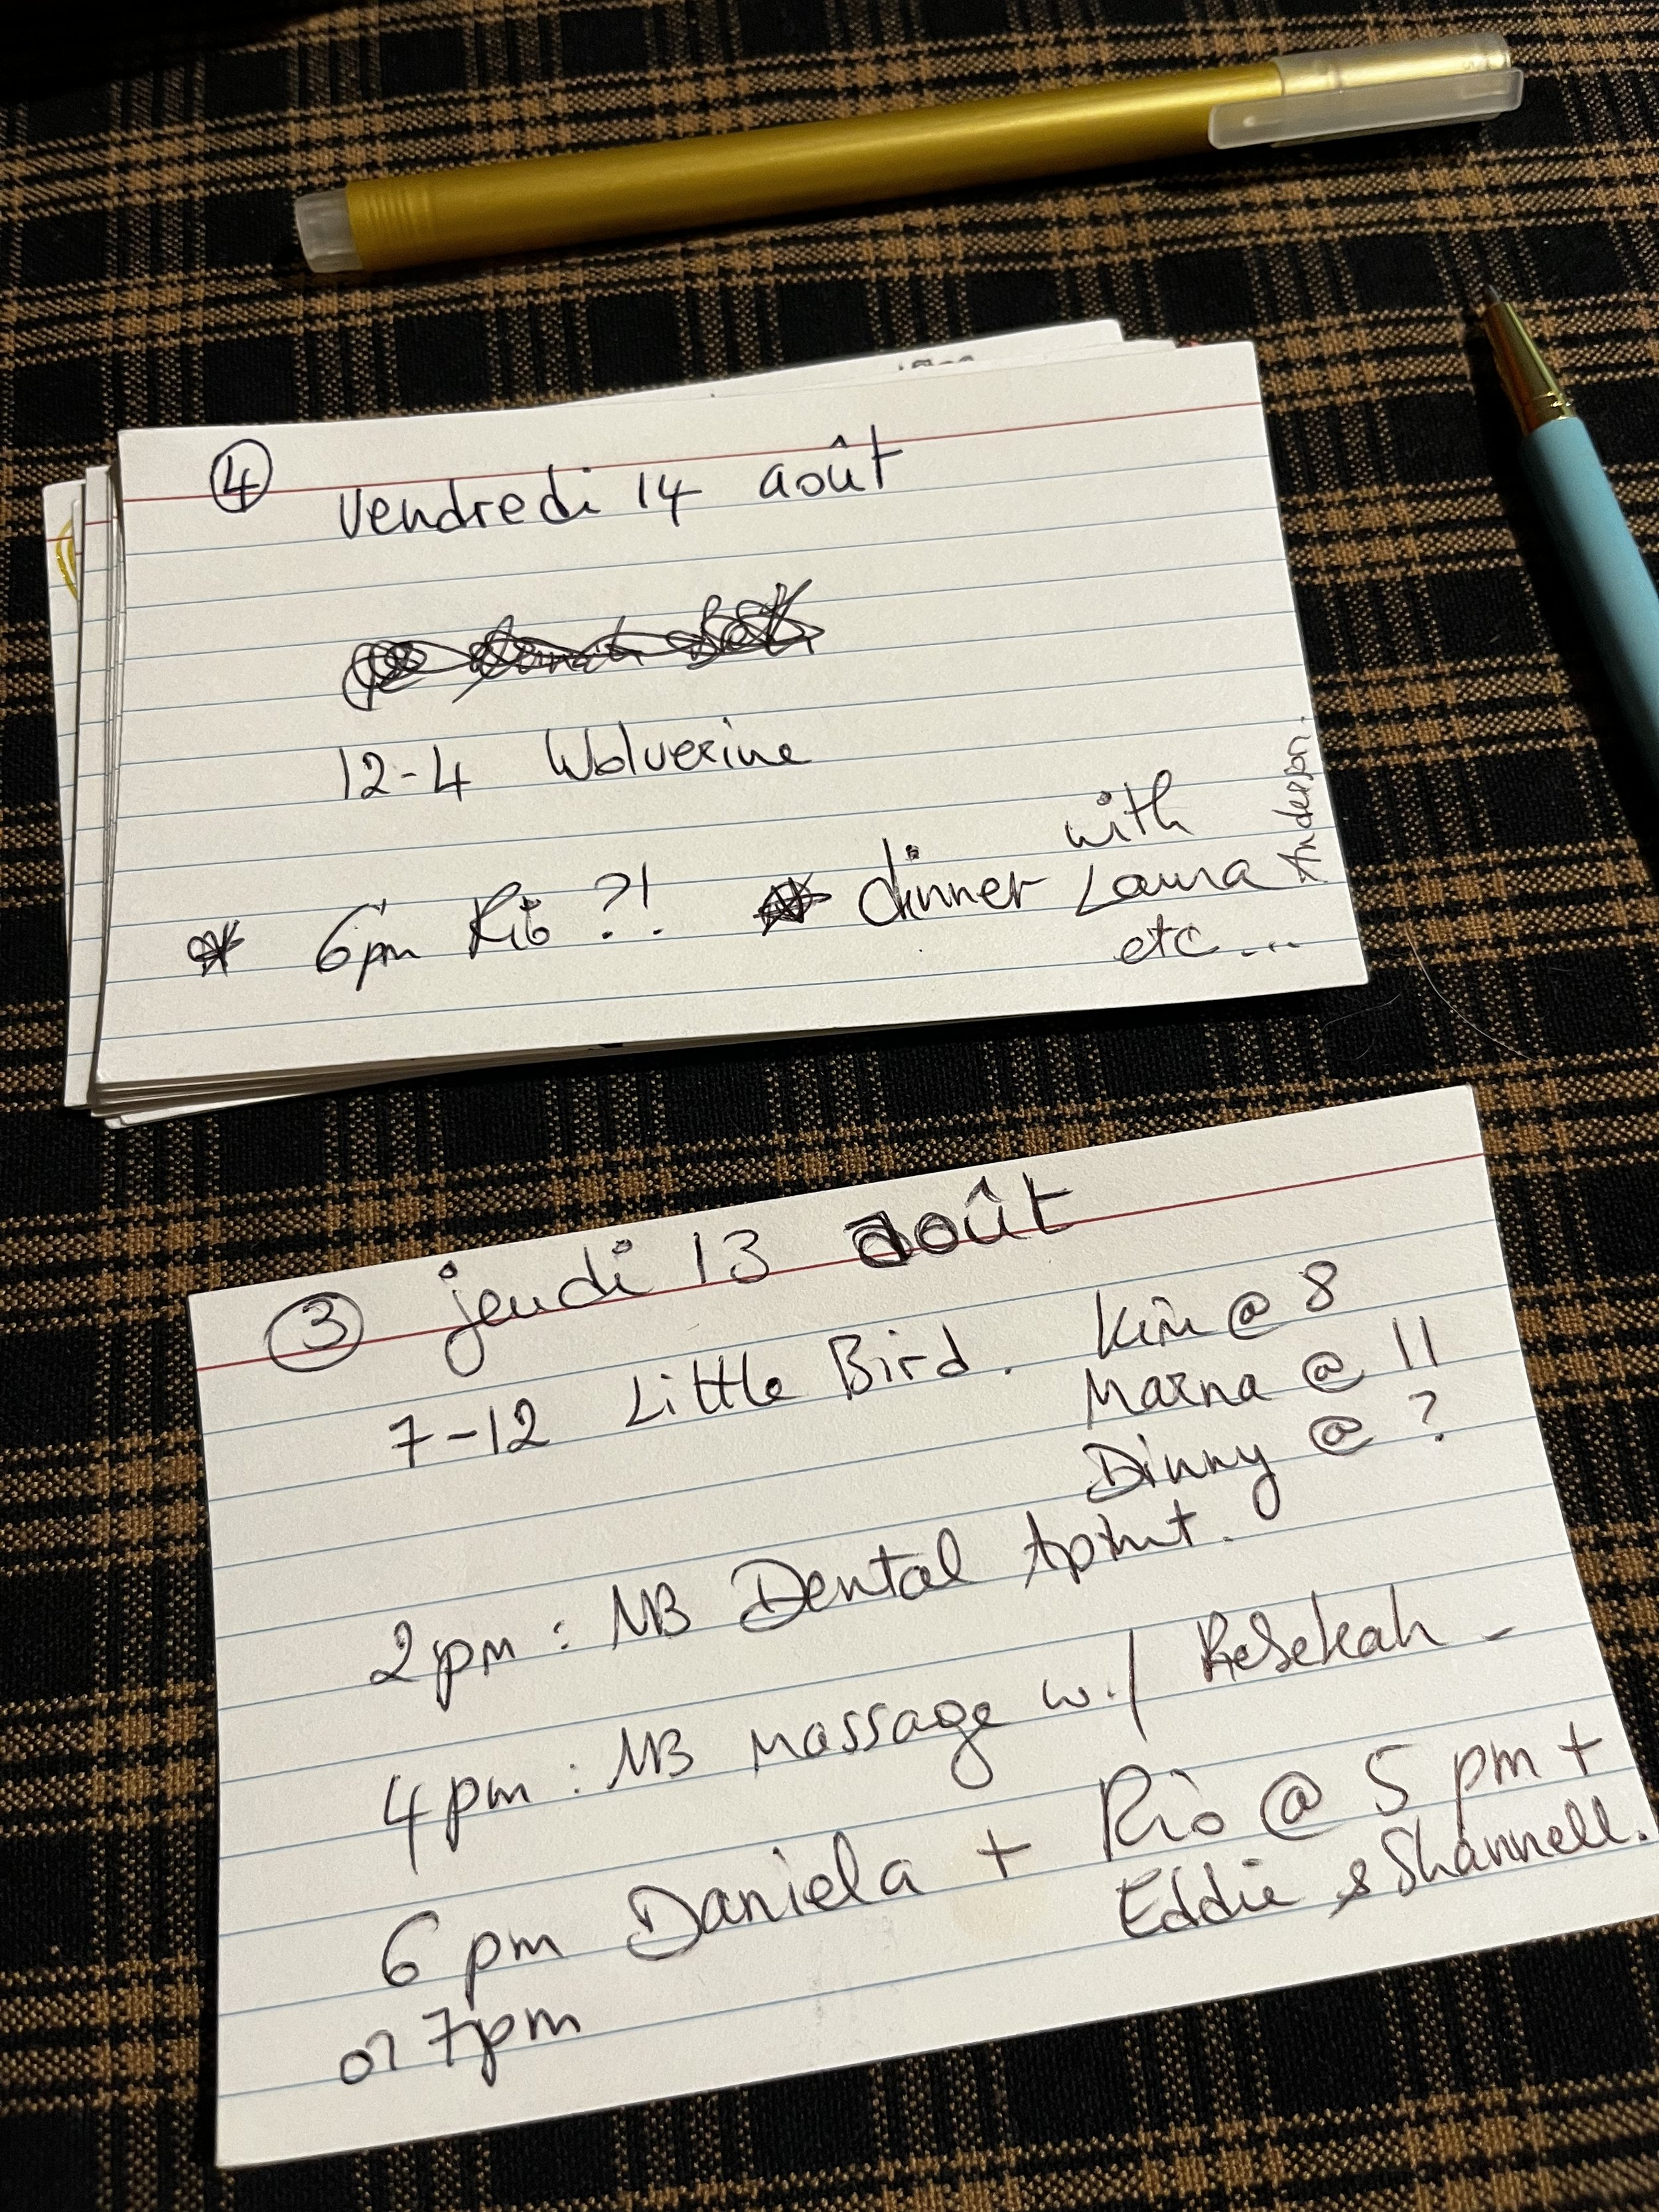 ④ vendredi 14 août
12-4 Wolverine
6pm Rio ?! dinner with Laura Anderson.
etc...
③ jeudi 13 août
7-12 Little Bird. Kim @ 8
Marna @ 11
Dinny @ ?
2pm : NB Dental Aptmt.
4pm : NB Massage w./ Rebekah -
6 pm Daniela + Rio @ 5 pm +
Eddie & Shannell.
or 7pm